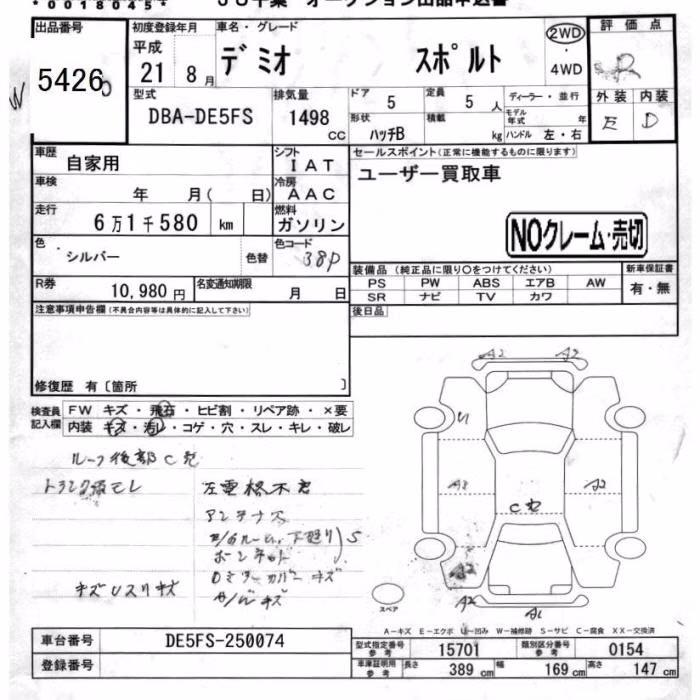 *0018045*
JU千葉 オークション出品申込書
出品番号 初度登録年月 車名・グレード 2WD 評価点
平成 デミオ スポルト 4WD R
54260 21 8月
外装 内装
型式 排気量 ドア 5 定員 5 人 ディーラー・並行 E D
DBA-DE5FS 1498 cc 形状 ハッチB 積載 kg モデル年式 年
ハンドル 左・右
車歴 自家用 シフト IAT セールスポイント(正常に機能するものに限ります)
車検 年 月( 日) 冷房 AAC ユーザー買取車
走行 6万1千580 km 燃料 ガソリン
NOクレーム・売切
色 シルバー 色替 色コード 38P
装備品(純正品に限り〇をつけてください) 新車保証書
R券 10,980円 名変通知期限 月 日 PS PW ABS エアB AW 有・無
SR ナビ TV カワ
注意事項申告欄(不具合内容等は具体的に記入して下さい) 後日品
修復歴 有〔箇所 〕
検査員記入欄 FW キズ・飛石・ヒビ割・リペア跡・×要
内装 キズ・汚レ・コゲ・穴・スレ・キレ・破レ
A2 A2
U
ルーフ後部C穴
左電格不良
A2 A2
C穴
アンテナ欠
A2
キズUスリキズ
スペア A2 A1
A-キズ E-エクボ U-凹み W-補修跡 S-サビ C-腐食 XX-交換済
車台番号 DE5FS-250074 型式指定番号 参考 15701 類別区分番号 参考 0154
登録番号 車庫証明用 参考 長さ 389 cm 幅 169 cm 高さ 147 cm